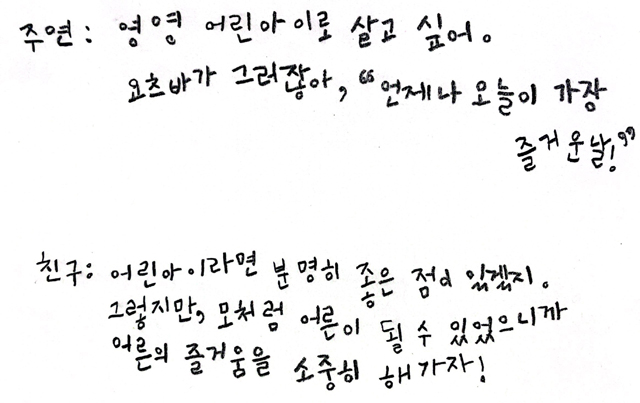 주연: 영영 어린아이로 살고 싶어.
요츠바가 그러잖아, "언제나 오늘이 가장
즐거운날!"
친구: 어린아이라면 분명히 좋은 점이 있겠지.
그렇지만, 모처럼 어른이 될 수 있었으니까
어른의 즐거움을 소중히 해가자!